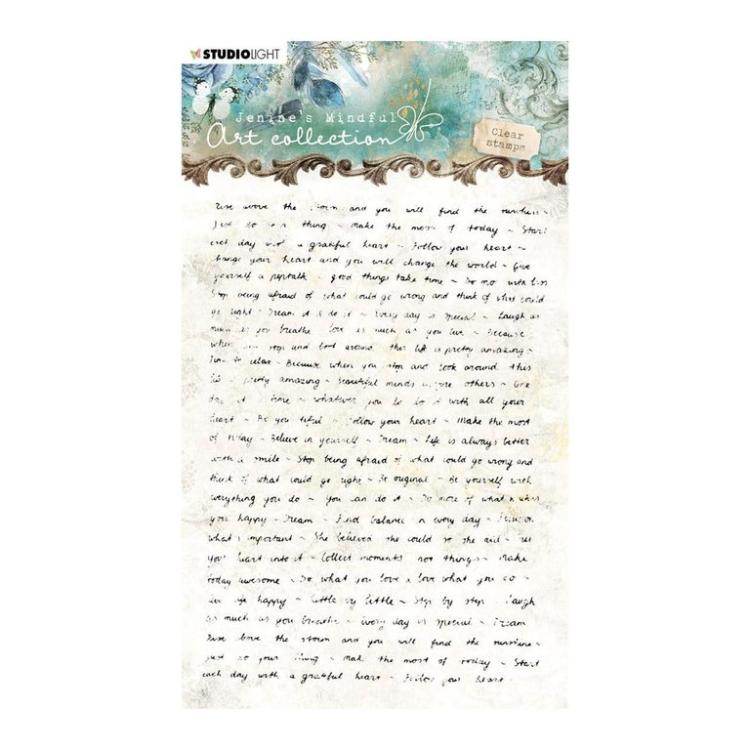 STUDIOLIGHT
Jenine's Mindful
Art collection
Clear
stamps
Rise above the storm and you will find the sunshine -
Just do your thing - Make the most of today - Start
each day with a grateful heart - Follow your heart -
Change your heart and you will change the world - Give
yourself a peptalk - good things take time - Do more with less
Stop being afraid of what could go wrong and think of what could
go right - Dream it & do it - Every day is special - Laugh as
much as you breathe love as much as you live - Because
when you stop and look around this life is pretty amazing -
Time to relax - Because when you stop and look around this
life is pretty amazing - Beautiful minds inspire others - One
day at a time - whatever you do do it with all your
heart - Be you tiful - Follow your heart - Make the most
of today - Believe in yourself - Dream - Life is always better
with a smile - Stop being afraid of what could go wrong and
think of what could go right - Be original - Be yourself with
everything you do - You can do it - Do more of what makes
you happy - Dream - Find balance in every day - Focus on
what's important - She believed she could so she did - Put
your heart into it - Collect moments not things - Make
today awesome - Do what you love & love what you do -
life happy - Little by little - Step by step - Laugh
as much as you breathe - Every day is special - Dream
Rise above the storm and you will find the sunshine -
Just do your thing - Make the most of today - Start
each day with a grateful heart - Follow your heart